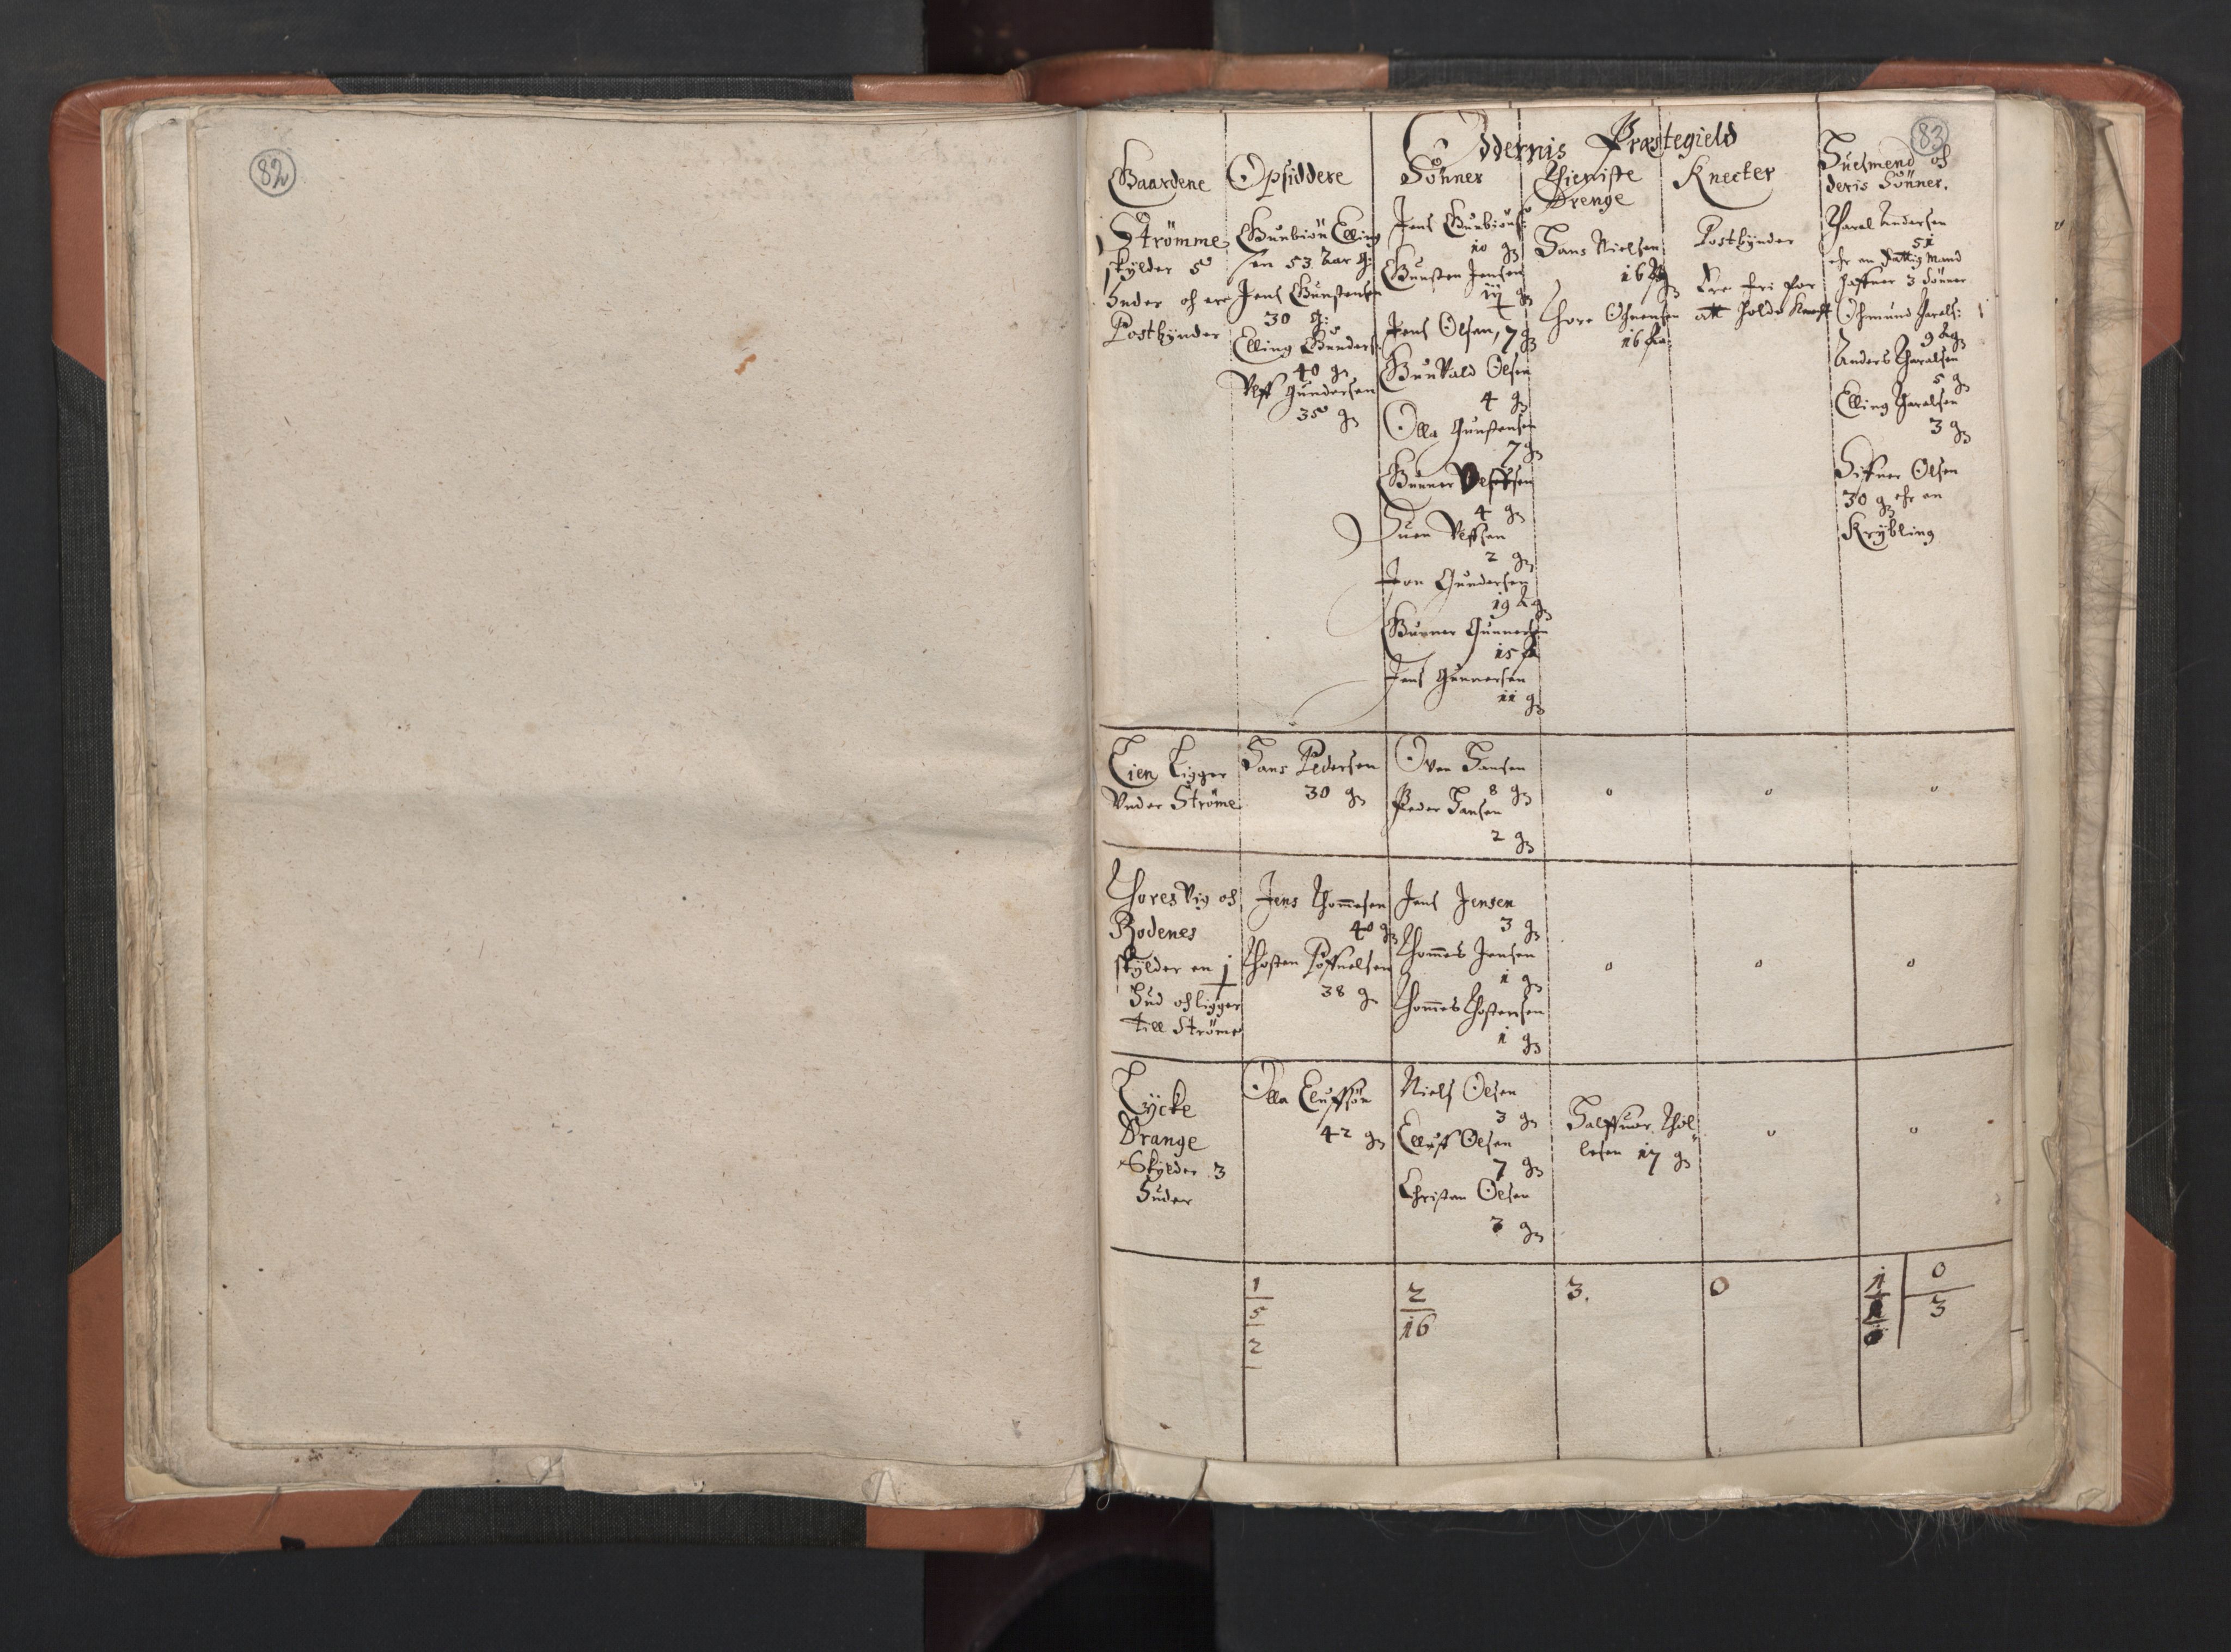 82
83
Oddernis Præstegield
Gaardene
Opsiddere
Sönner
Thieniste
Drenge
Knecter
Huusmend och
deris Sönner.
Strömme
skylder 5
Huder och ere
Postbynder
Gunbiön Elling
sen 53 Aar g:
Jens Gunstensen
30 g:
Elling Gunders:
40 g
Ulff Gundersen
35 g
Jens Gunbiöns:
10 g
Gunsten Jensen
Jens Olsen, 7 g
Gunvald Olsen
4 g
Olla Gunstensen
7 g
Gunner Ulffsen
4 g
Suen Ulffsen
2 g
Jon Gundersen
19 g
Gunner Gunnersen
15
Jens Gunnersen
11 g
Hans Nielsen
16
Thore
16
Postbynder
Ere fri for
att holde Knecft
Harel Andersen
51
ehr en fattig Mand
haffuer 3 Sönner
Ohmund Harels:
9
Anders Harelsen
5 g
Elling Harelsen
3 g
Siffuer Olsen
30 g ehr en
Krybling
Eien Ligger
Under Ströme
Hans Pedersen
30 g
Oven Hansen
8 g
Peder Hansen
2 g
Thoresvig och
Bodenes
skylder en j
Hud och ligger
till Ströme
Jens Thommesen
40 g
Thosten
38 g
Jens Jensen
3 g
Thommes Jensen
1 g
Thommes Thostensen
1 g
Lycke
Drange
Skylder 3
Huder
Olla Eluffsön
42 g
Niels Olsen
3 g
Elluff Olsen
7 g
Christen Olsen
3 g
Halffuor Thol
lesen 17 g
1
5
2
2
16
3.
0
1
0
3